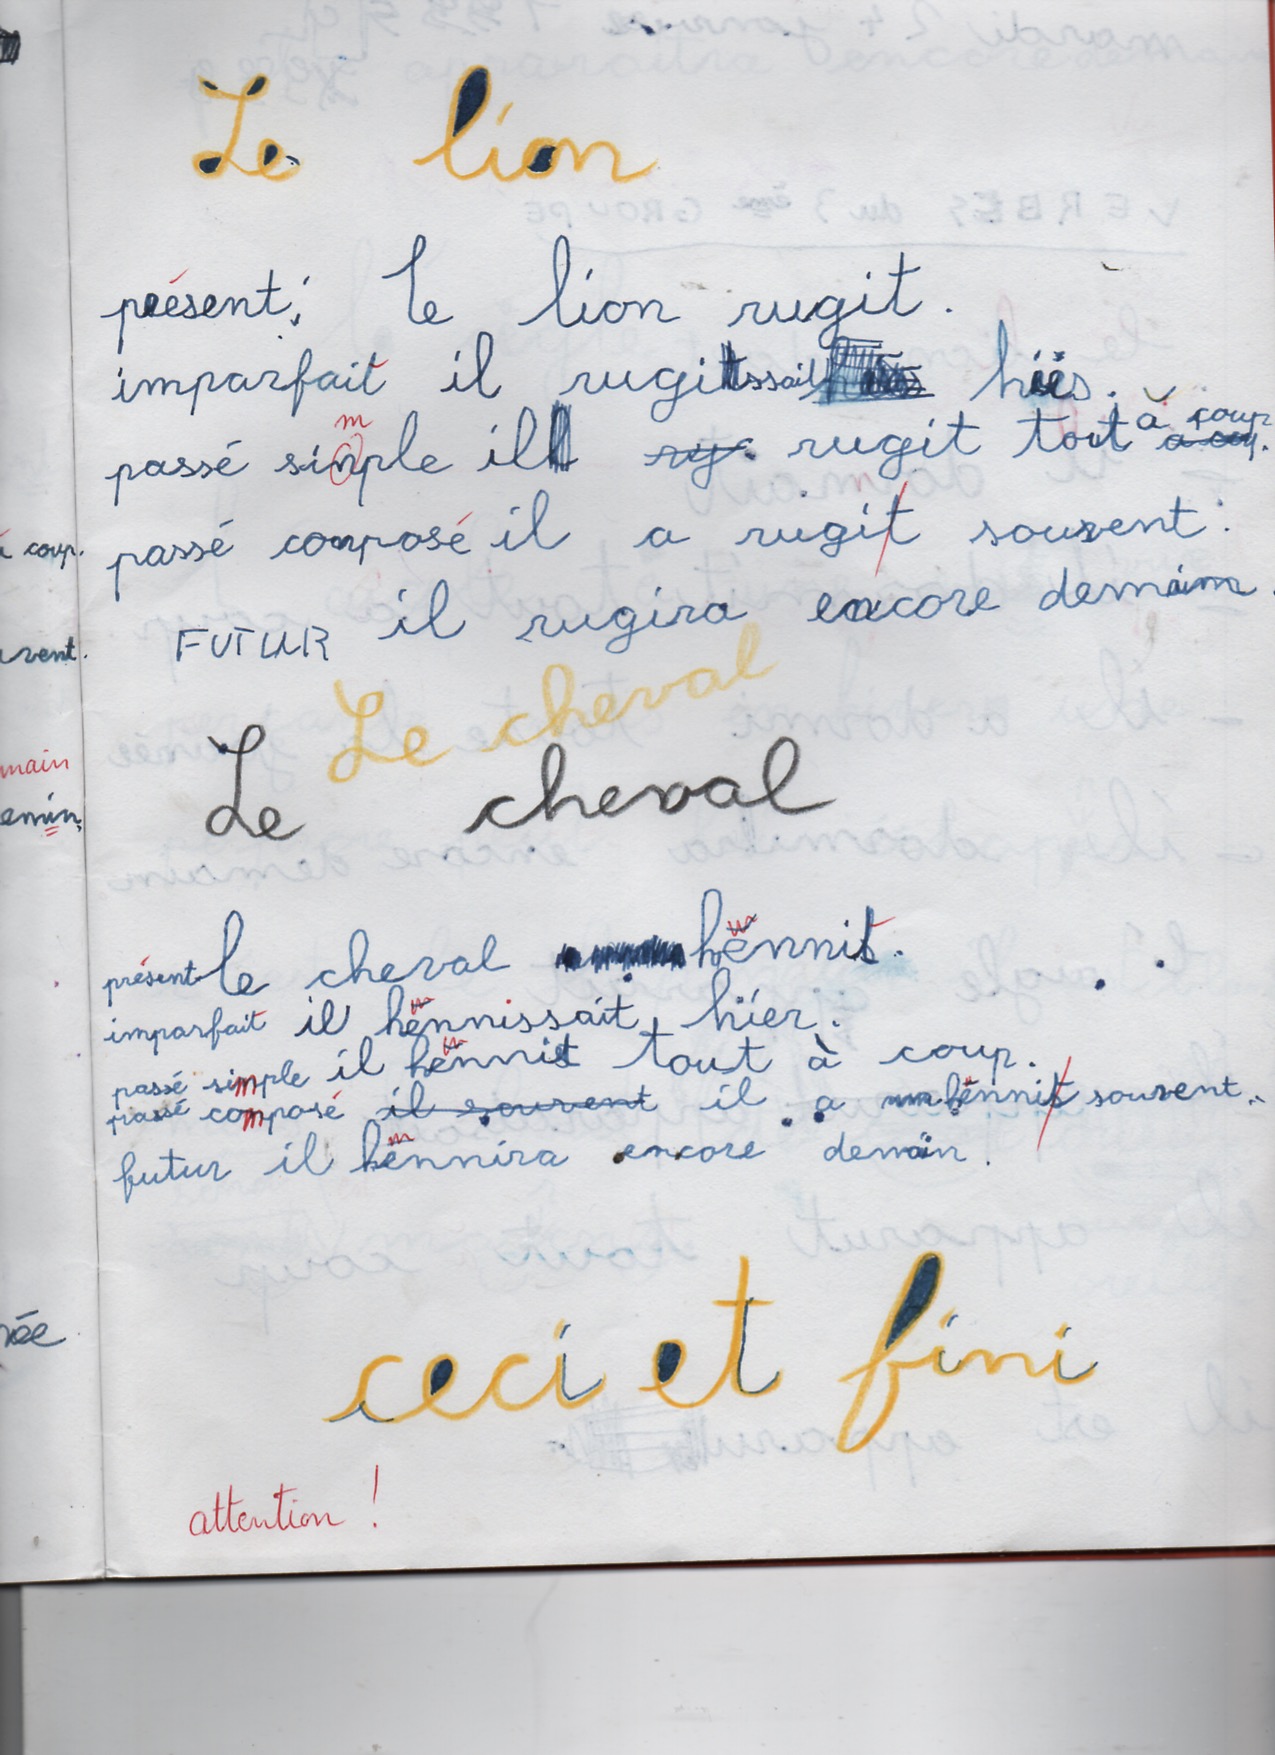 Le lion
présent : Le lion rugit.
imparfait il rugissait hier.
m
passé sinple il rugit tout à coup
passé composé il a rugit souvent.
FUTUR il rugira encore demain.
Le cheval
Le cheval
présent le cheval hënnit.
imparfait il hënnissait hier.
passé simple il hënnit tout à coup.
passé composé il souvent il a hënnit souvent.
futur il hënnira encore demain.
ceci et fini
attention !
à coup.
vent.
main
emin.
née